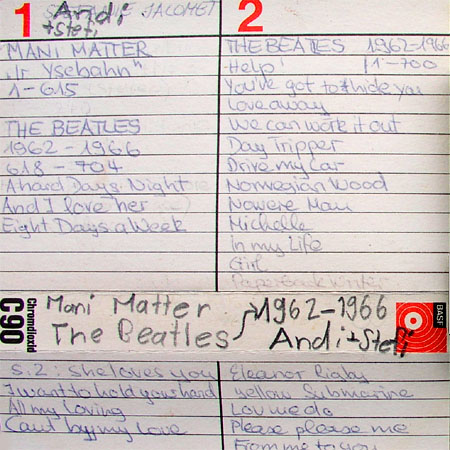 1 Andi
+ Stefi
MANI MATTER
"Ir Ysebahn"
1-615
THE BEATLES
1962-1966
618-704
A hard Days Night
And I love her
Eight Days a Week
2
THE BEATLES 1962-1966
Help! 1-700
You've got to hide you
Love away
We can work it out
Day Tripper
Drive my car
Norwegian Wood
Nowere Man
Michelle
In my Life
Girl
Paperback Writer
C90
Chromdioxid
Mani Matter
The Beatles
1962-1966
Andi + Stefi
BASF
S.2: She loves you
I want to hold your hand
All my Loving
Cant buy my Love
Eleanor Rigby
Yellow Submarine
Lov me do
Please please me
From me to you